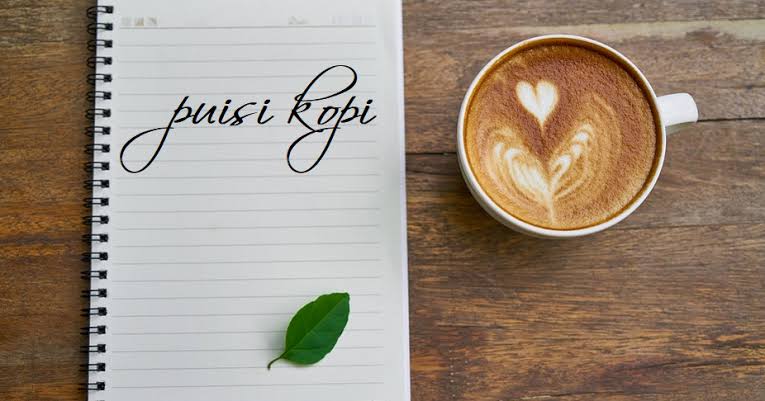 puisi kopi